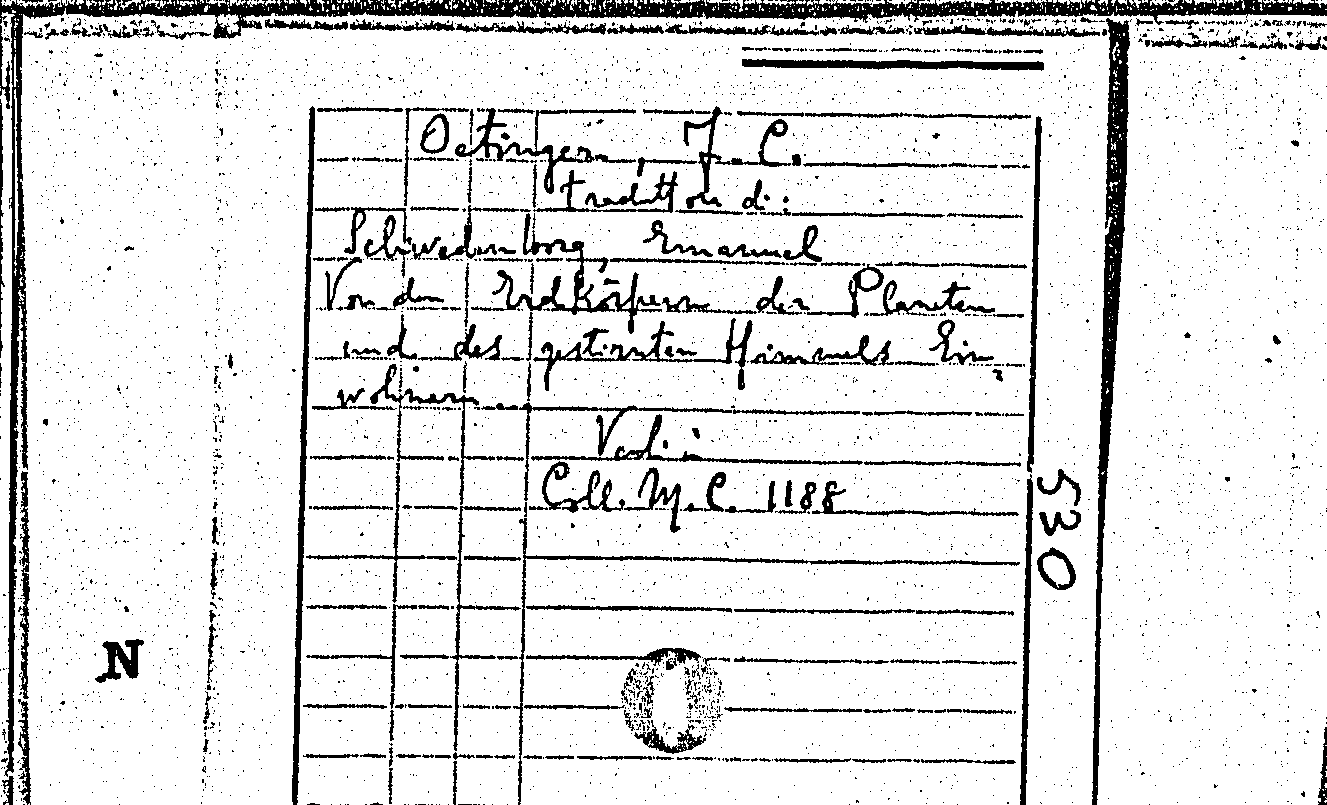 Oetingern, F. C.
traduttore di:
Schwedenborg, Emanuel
Von den Erdkörpern der Planeten
und des gestirnten Himmels Ein,
wohnern ...
Vedi in
Coll. M. C. 1188
530
N